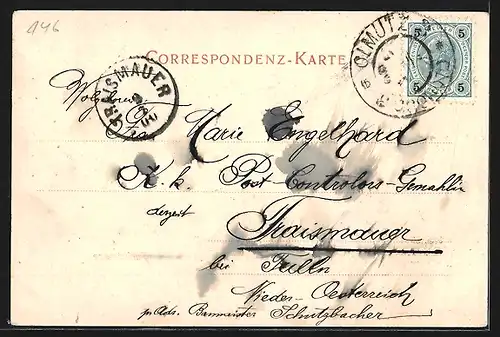 946
CORRESPONDENZ-KARTE
OLMÜTZ
5 5
5 5
TRAISMAUER
Wolgeboren
Frau Marie Engelhard
K. k. Post-Controlors-Gemahlin
derzeit
Traismauer
bei Tulln
Nieder-Oesterreich
p. Ads. Baumeister Schutzbacher